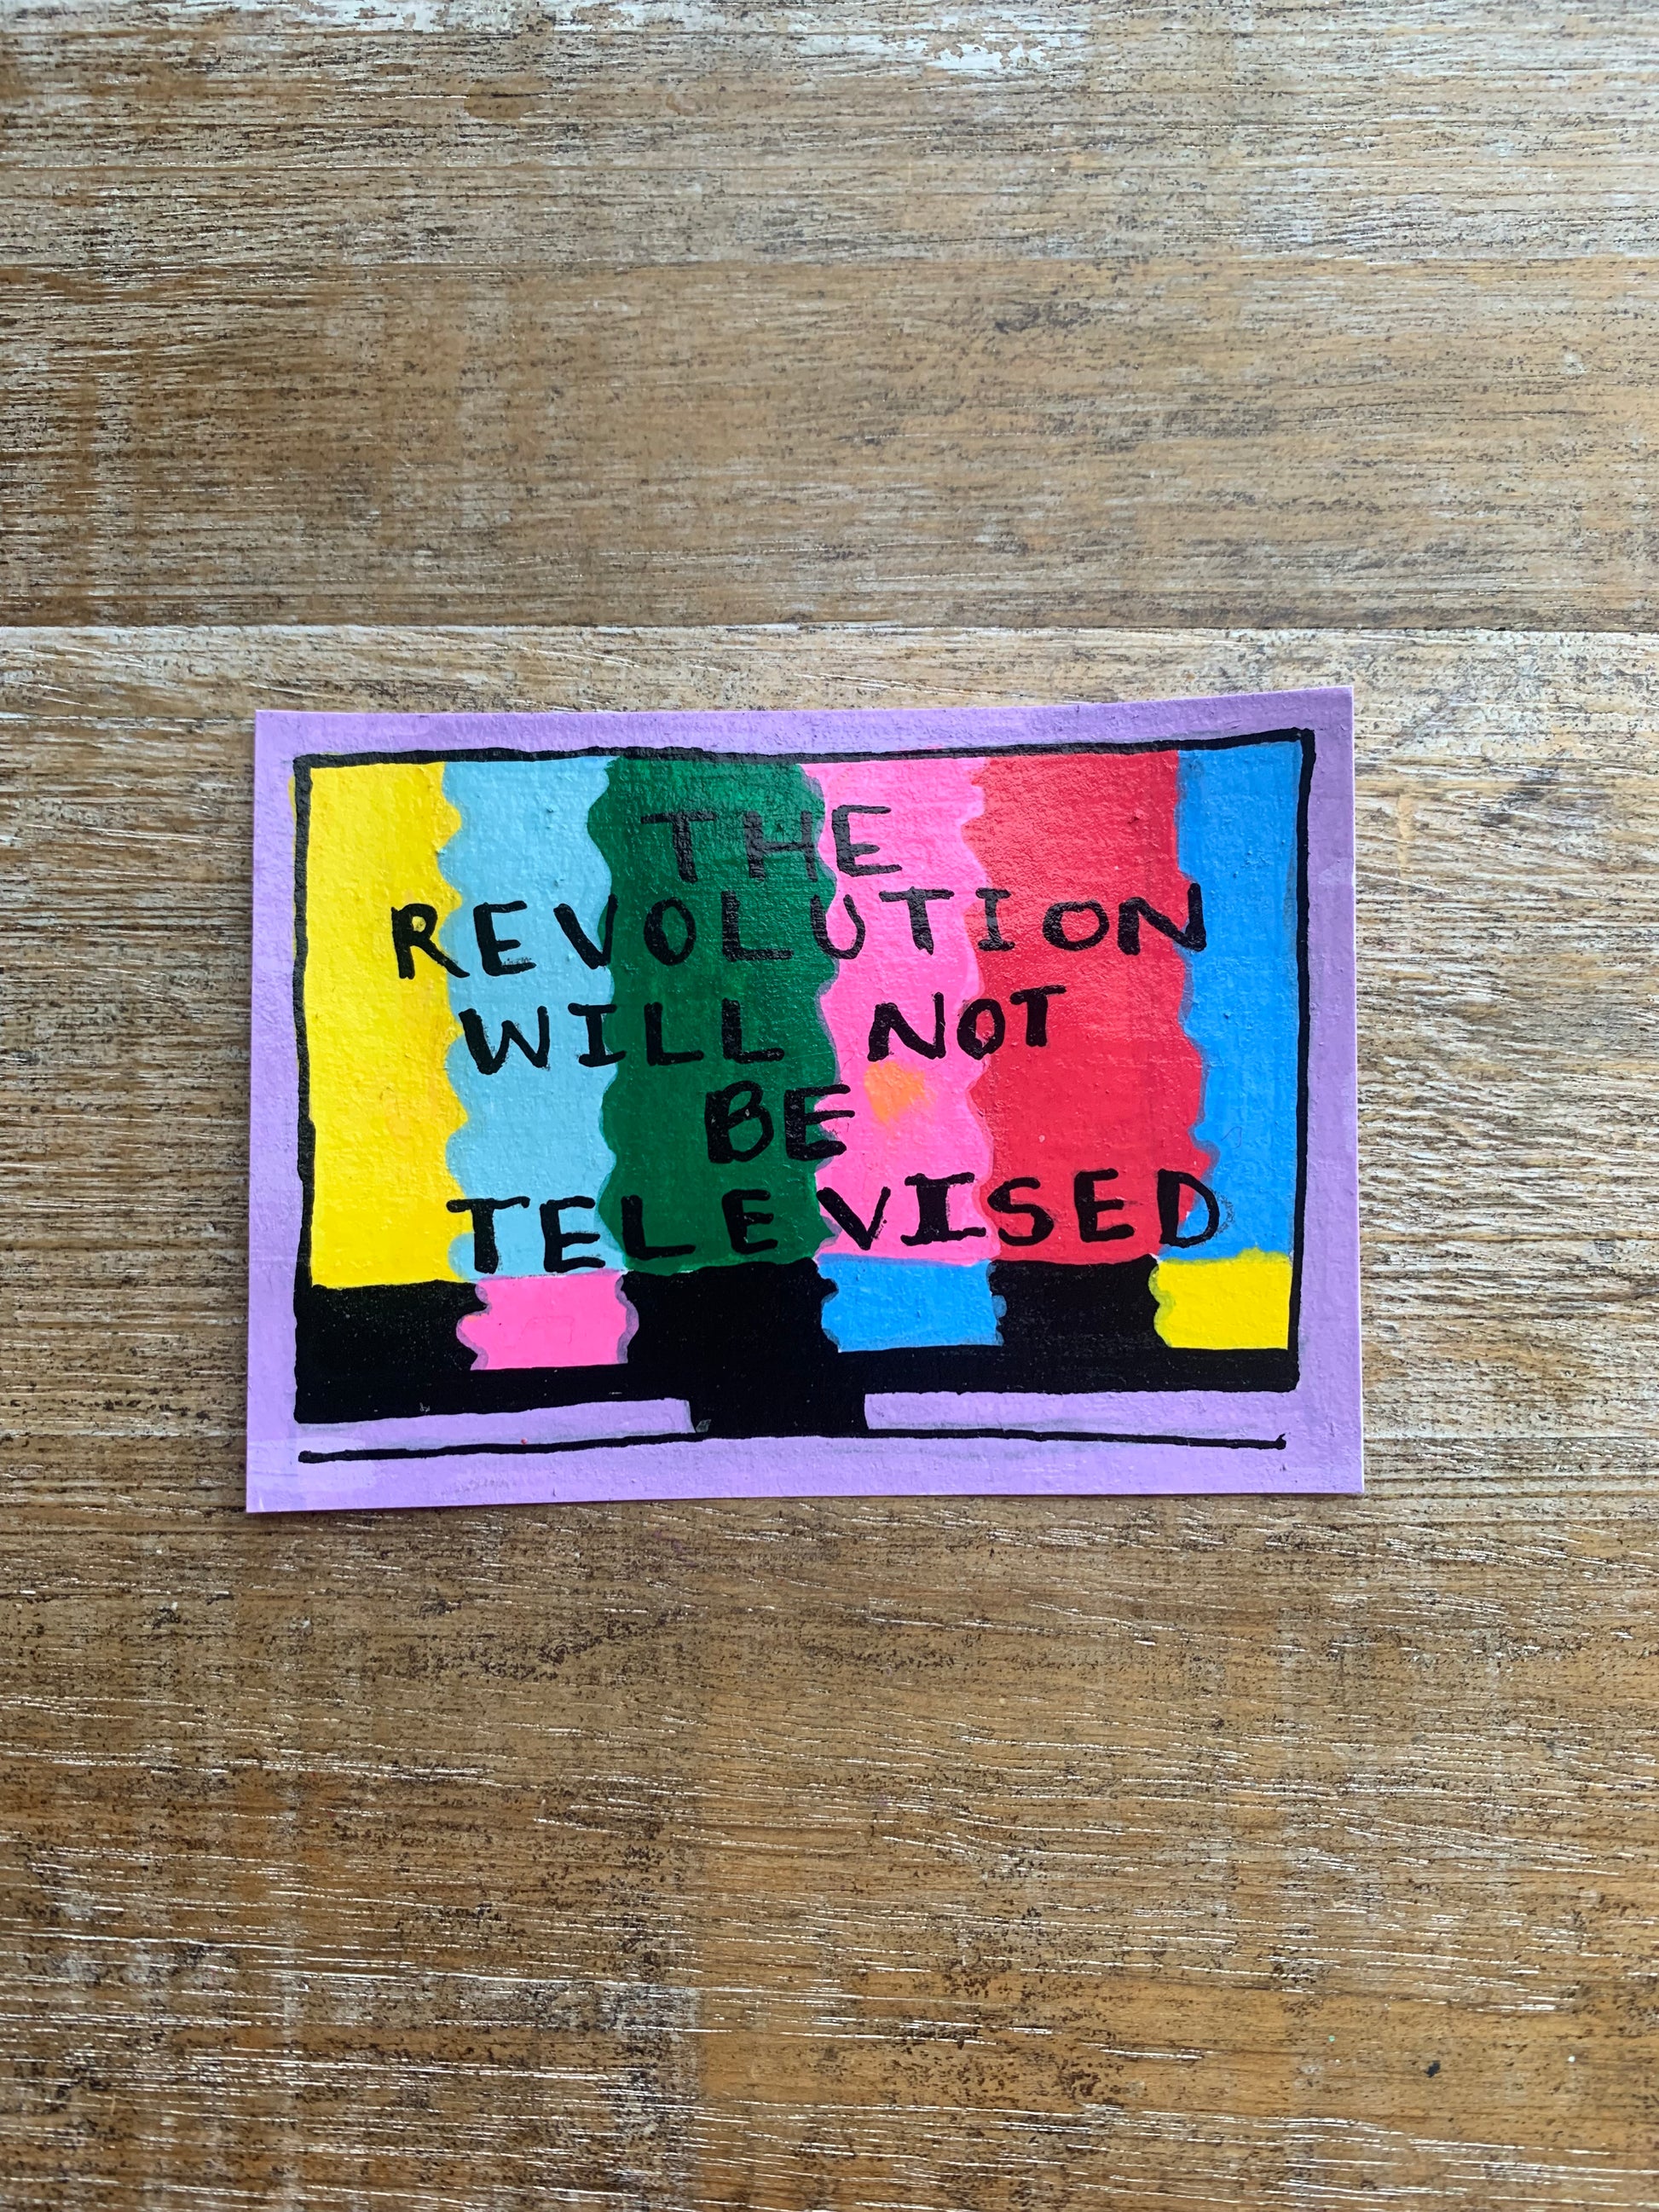 THE
REVOLUTION
WILL NOT
BE
TELEVISED